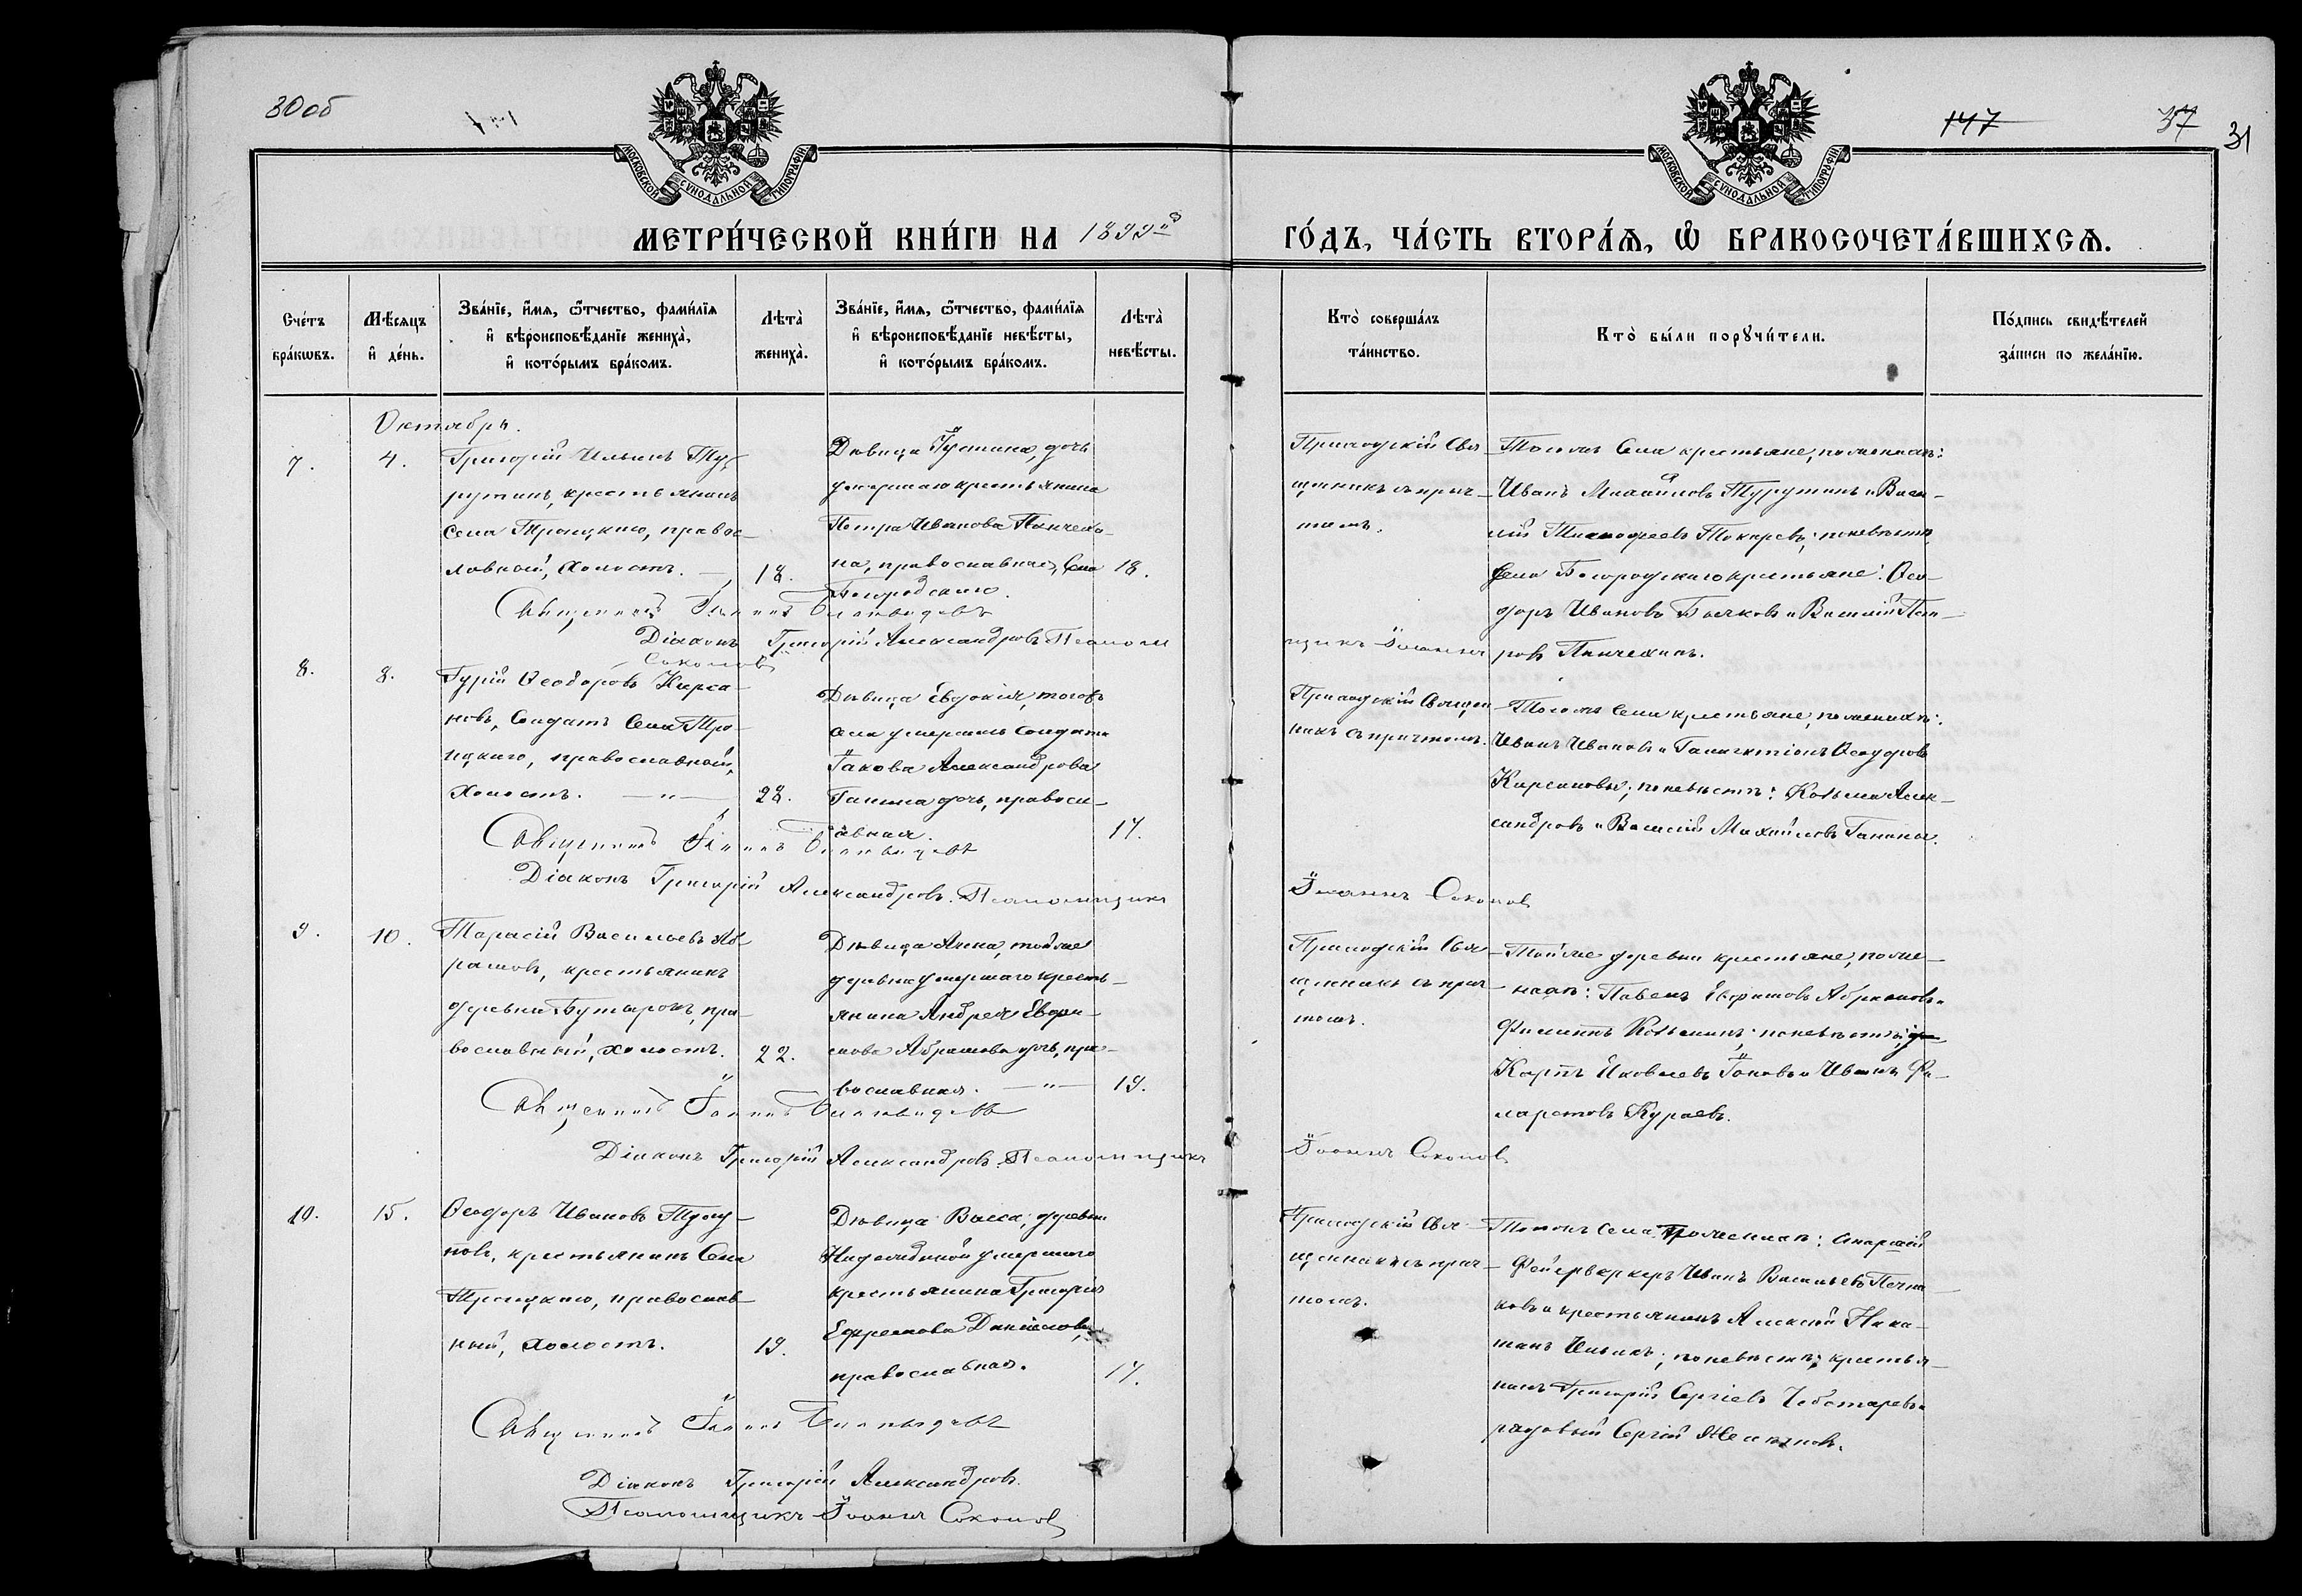 30об
147
37
31
МОСКОВСКОЙ СѴНОДАЛЬНОЙ ТИПОГРАФІИ
МОСКОВСКОЙ СѴНОДАЛЬНОЙ ТИПОГРАФІИ
МЕТРИ́ЧЕСКОЙ КНИ́ГИ НА 1899й
ГО́ДЪ, ЧА́СТЬ ВТОРА́Ѧ, Ѽ БРАКОСОЧЕТА́ВШИХСѦ.
Сче́тъ
бра́кωвъ.
Мѣ́сѧцъ
и҆ де́нь.
Зва́нїе, и҆́мѧ, ѻ҆́тчество, фами́лїѧ
и҆ вѣроисповѣ́данїе жениха̀,
и҆ кото́рымъ бра́комъ.
Лѣта̀
жениха̀.
Зва́нїе, и҆́мѧ, ѻ҆́тчество, фами́лїѧ
и҆ вѣроисповѣ́данїе невѣ́сты,
и҆ кото́рымъ бра́комъ.
Лѣта̀
невѣ́сты.
Кто̀ соверша́лъ
та́инство.
Кто̀ бы́ли порꙋчи́тели.
По́дпись свидѣ́телей
за́писи по жела́нїю.
Октябрь.
7.
4.
Григорій Ильинъ Ту-
рутинъ, крестьянинъ
Села Троицкаго, правос-
лавный, холостъ.
18.
Дѣвица Іустина, дочь
умершаго крестьянина
Петра Иванова Панчехи-
на, православная, Села
Богородскаго.
18.
Приходскій Свя-
щенникъ съ прич-
томъ.
Тогожъ Села крестьяне, по женихѣ:
Иванъ Михаиловъ Турутинъ и Васи-
лій Тимофеевъ Токаревъ; по невѣстѣ,
Села Богородскаго крестьяне: Ѳео-
доръ Ивановъ Бычковъ и Василій Пет-
ровъ Панчехинъ.
Священникъ Іоаннъ
Діаконъ Григорій Александровъ Псалом
щикъ Іоаннъ
Соколовъ
8.
8.
Гурій Ѳеодоровъ Кирса-
новъ, Солдатъ Села Тро-
ицкаго, православный,
холостъ. —"—
22.
Дѣвица Евдокія, тогожъ
села умершаго солдата
Іакова Александрова
Ганина дочь, правосл-
авная.
17.
Приходскій Священ-
никъ съ причтомъ.
Тогожъ Села крестьяне, по женихѣ:
Иванъ Ивановъ и Галактіонъ Ѳеодоровъ
Кирсановы; по невѣстѣ: Козьма Алек-
сандровъ и Василій Михайловъ Ганины.
Священникъ Іоаннъ
Діаконъ Григорій Александровъ. Псаломщикъ
Іоаннъ Соколовъ
9.
10.
Тарасій Васильевъ Аб-
рамовъ, крестьянинъ
деревни Бутаровъ, пра-
вославный, холостъ.
22.
Дѣвица Анна, тойже
деревни умершаго кресть-
янина Андрея
Абрамова дочь, пра-
вославная. —"—
19.
Приходскій Свя-
щенникъ съ прич-
томъ.
Тойже деревни крестьяне, по же-
нихѣ: Павелъ Ефимовъ Абрамовъ и
Филиппъ Козьминъ; по невѣстѣ:
Карпъ Яковлевъ и Иванъ Фи-
ларетовъ Кураевъ.
Священникъ Іоаннъ
Діаконъ Григорій Александровъ. Псаломщикъ
Іоаннъ Соколовъ
10.
15.
Ѳеодоръ Ивановъ
крестьянинъ Села
Троицкаго, православ-
ный, холостъ.
19.
Дѣвица Васса, деревни
умершаго
крестьянина Григорія
Ефремова Данилова,
православная.
17.
Приходскій Свя-
щенникъ съ прич-
томъ.
Тогожъ Села. по женихѣ: старшій
Фейерверкеръ Иванъ Васильевъ
и крестьянинъ Алексѣй
Ильинъ; по невѣстѣ: крестья-
нинъ Григорій Сергіевъ Чеботаревъ и
рядовый Сергій
Священникъ Іоаннъ
Діаконъ Григорій Александровъ.
Псаломщикъ Іоаннъ Соколовъ